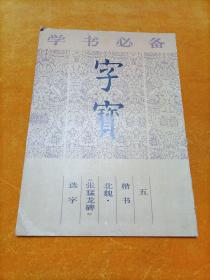 学书必备
字寳
五
楷书
北魏·
《张猛龙碑》
选字